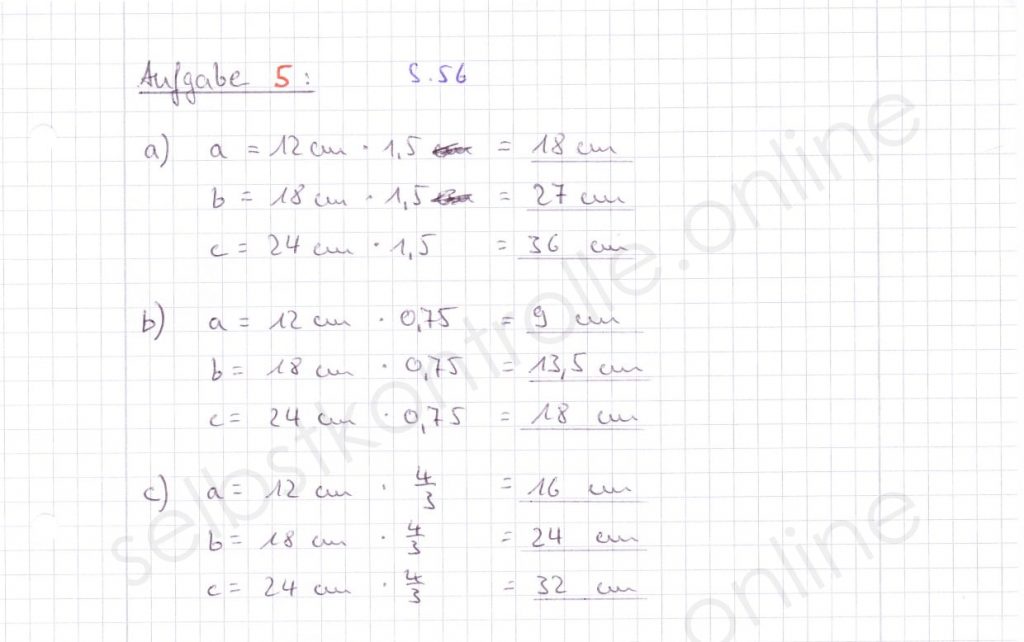 Aufgabe 5: S.56
a) a = 12 cm · 1,5 = 18 cm
b = 18 cm · 1,5 = 27 cm
c = 24 cm · 1,5 = 36 cm
b) a = 12 cm · 0,75 = 9 cm
b = 18 cm · 0,75 = 13,5 cm
c = 24 cm · 0,75 = 18 cm
c) a = 12 cm · 4/3 = 16 cm
b = 18 cm · 4/3 = 24 cm
c = 24 cm · 4/3 = 32 cm
selbstkontrolle.online
online